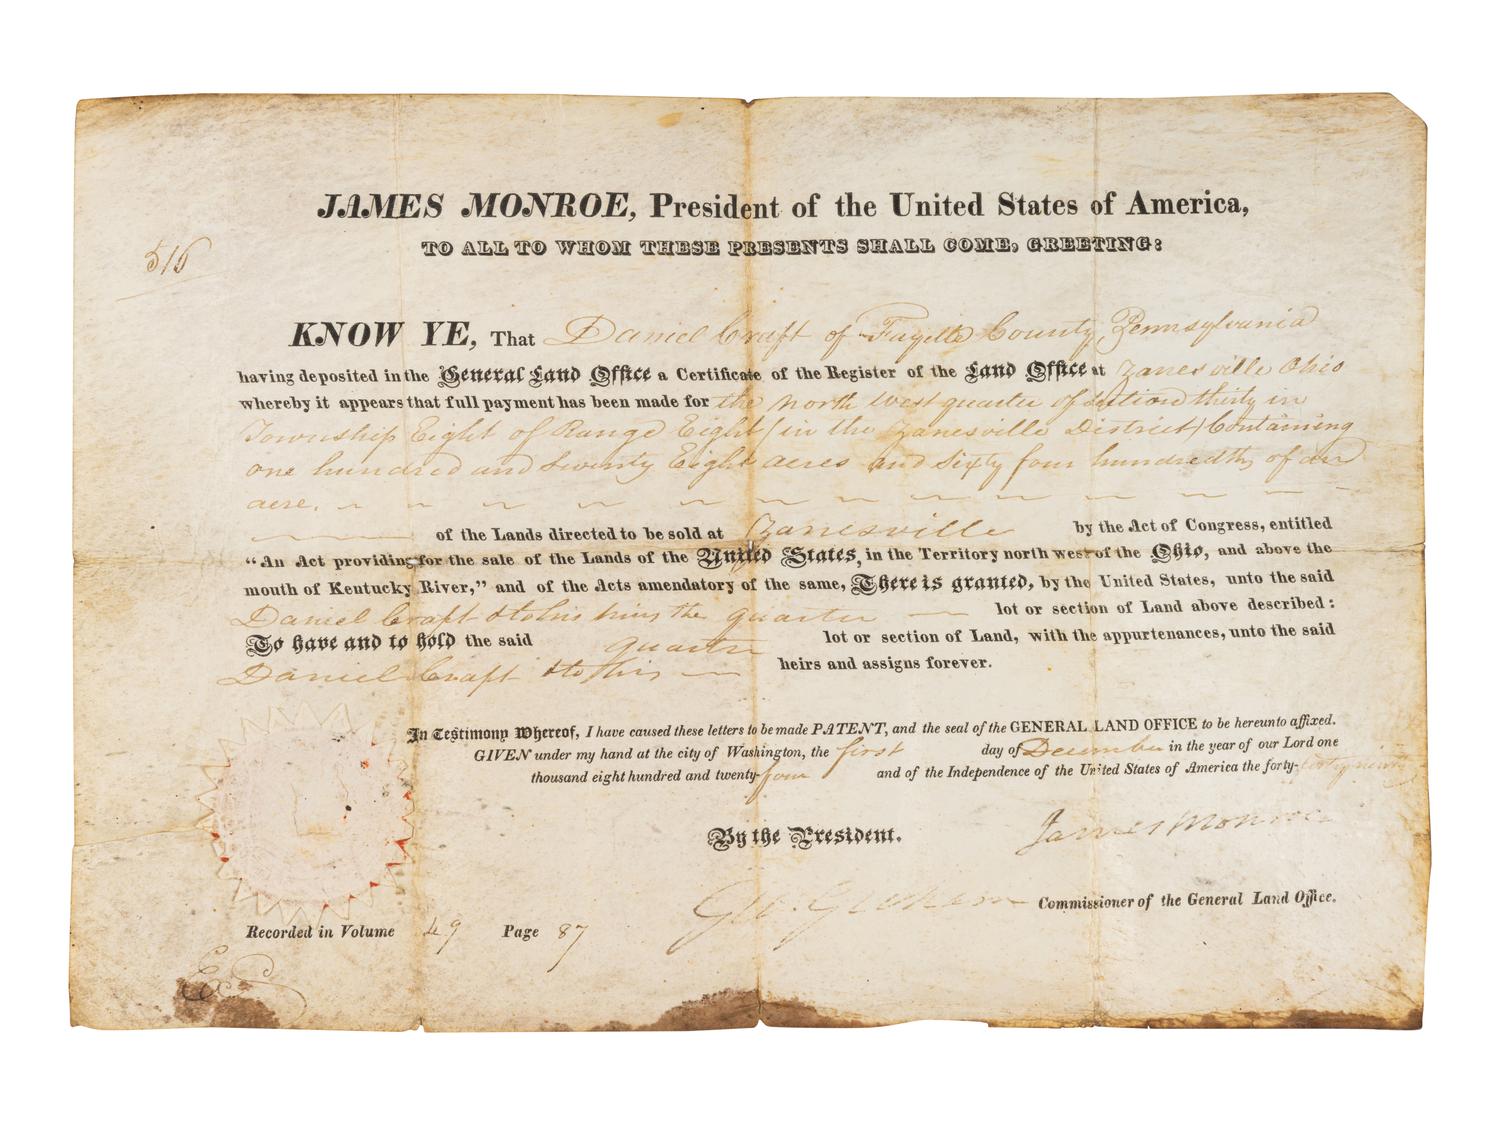 JAMES MONROE, President of the United States of America,
TO ALL TO WHOM THESE PRESENTS SHALL COME, GREETING:
516
KNOW YE, That Daniel Craft of Fayette County, Pennsylvania
having deposited in the General Land Office a Certificate of the Register of the Land Office at Zanesville Ohio
whereby it appears that full payment has been made for the north west quarter of Section thirty in
Township Eight of Range Eight (in the Zanesville District) Containing
one hundred and twenty Eight acres and Sixty four hundredths of an
acre.
of the Lands directed to be sold at Zanesville by the Act of Congress, entitled
“An Act providing for the sale of the Lands of the United States, in the Territory north west of the Ohio, and above the
mouth of Kentucky River,” and of the Acts amendatory of the same, There is granted, by the United States, unto the said
Daniel Craft & to his heirs the quarter lot or section of Land above described:
To have and to hold the said quarter lot or section of Land, with the appurtenances, unto the said
Daniel Craft & to his heirs and assigns forever.
In Testimony Whereof, I have caused these letters to be made PATENT, and the seal of the GENERAL LAND OFFICE to be hereunto affixed.
GIVEN under my hand at the city of Washington, the first day of December in the year of our Lord one
thousand eight hundred and twenty-four and of the Independence of the United States of America the forty-
By the President. James Monroe
Geo. Graham Commissioner of the General Land Office.
Recorded in Volume 49 Page 87